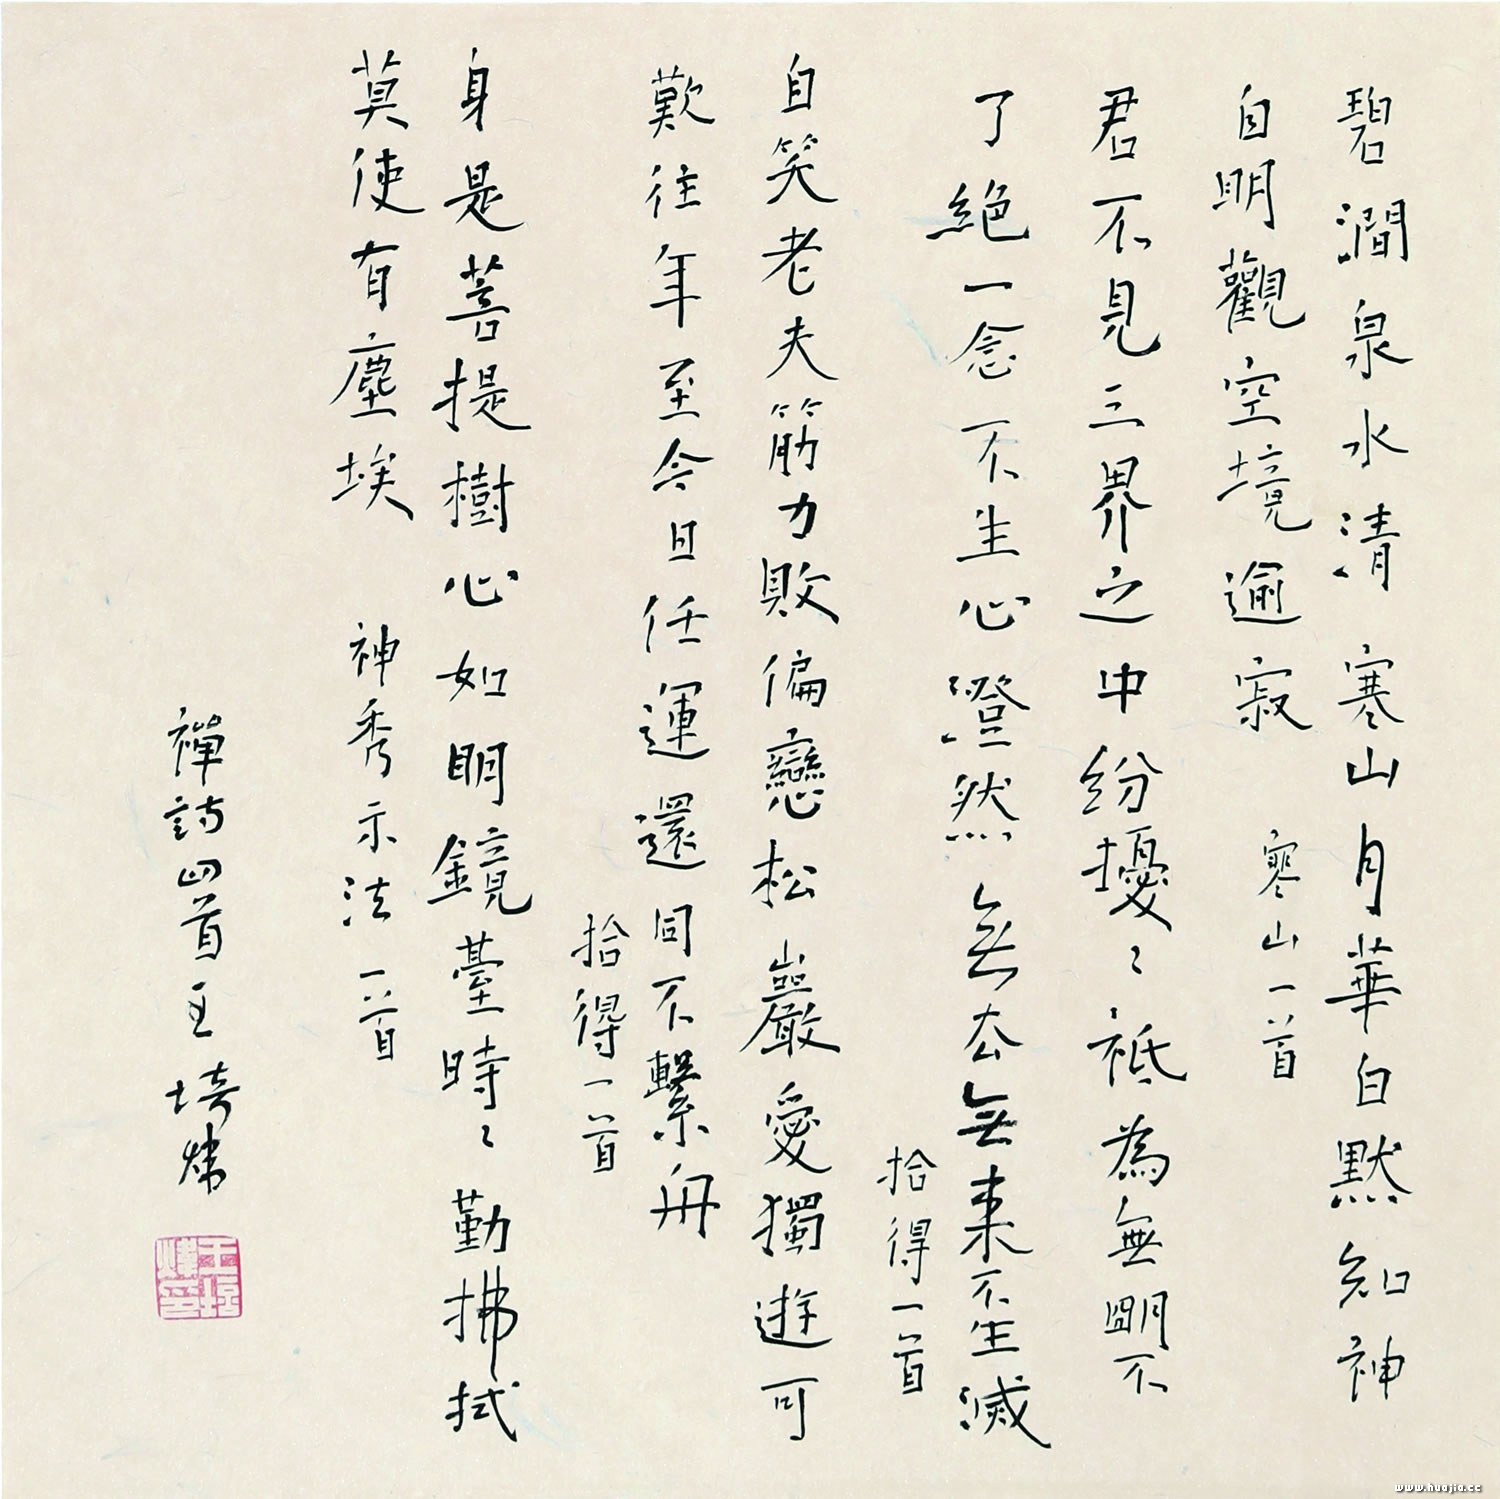 碧澗泉水清寒山月華白默知神
自明觀空境逾寂
寒山一首
君不見三界之中紛擾〻祗為無明不
了絕一念不生心澄然無去無來不生滅
拾得一首
自笑老夫筋力敗偏戀松巖愛獨遊可
歎往年至今日任運還同不繫舟
拾得一首
身是菩提樹心如明鏡臺時〻勤拂拭
莫使有塵埃
神秀示法一首
禪詩四首王培煒
王培煒印
www.huajia.cc